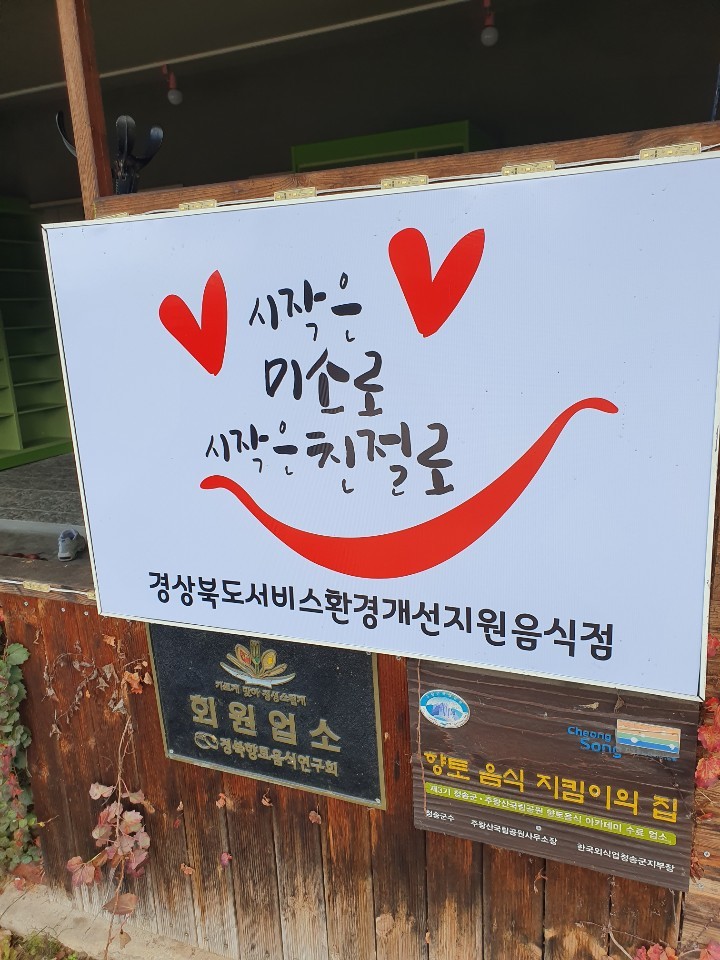 시작은
미소로
시작은 친절로
경상북도서비스환경개선지원음식점
회원업소
경북향토음식연구회
Cheong
Song
향토 음식 지킴이의 집
제3기 청송군·주왕산국립공원 향토음식 아카데미 수료 업소
청송군수 주왕산국립공원사무소장 한국외식업청송군지부장